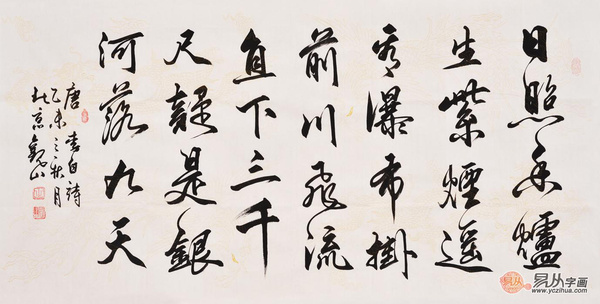 日照香爐
生紫煙遥
看瀑布掛
前川飛流
直下三千
尺疑是銀
河落九天
唐李白詩
乙未之秋月
京
易从字画
www.yczihua.com